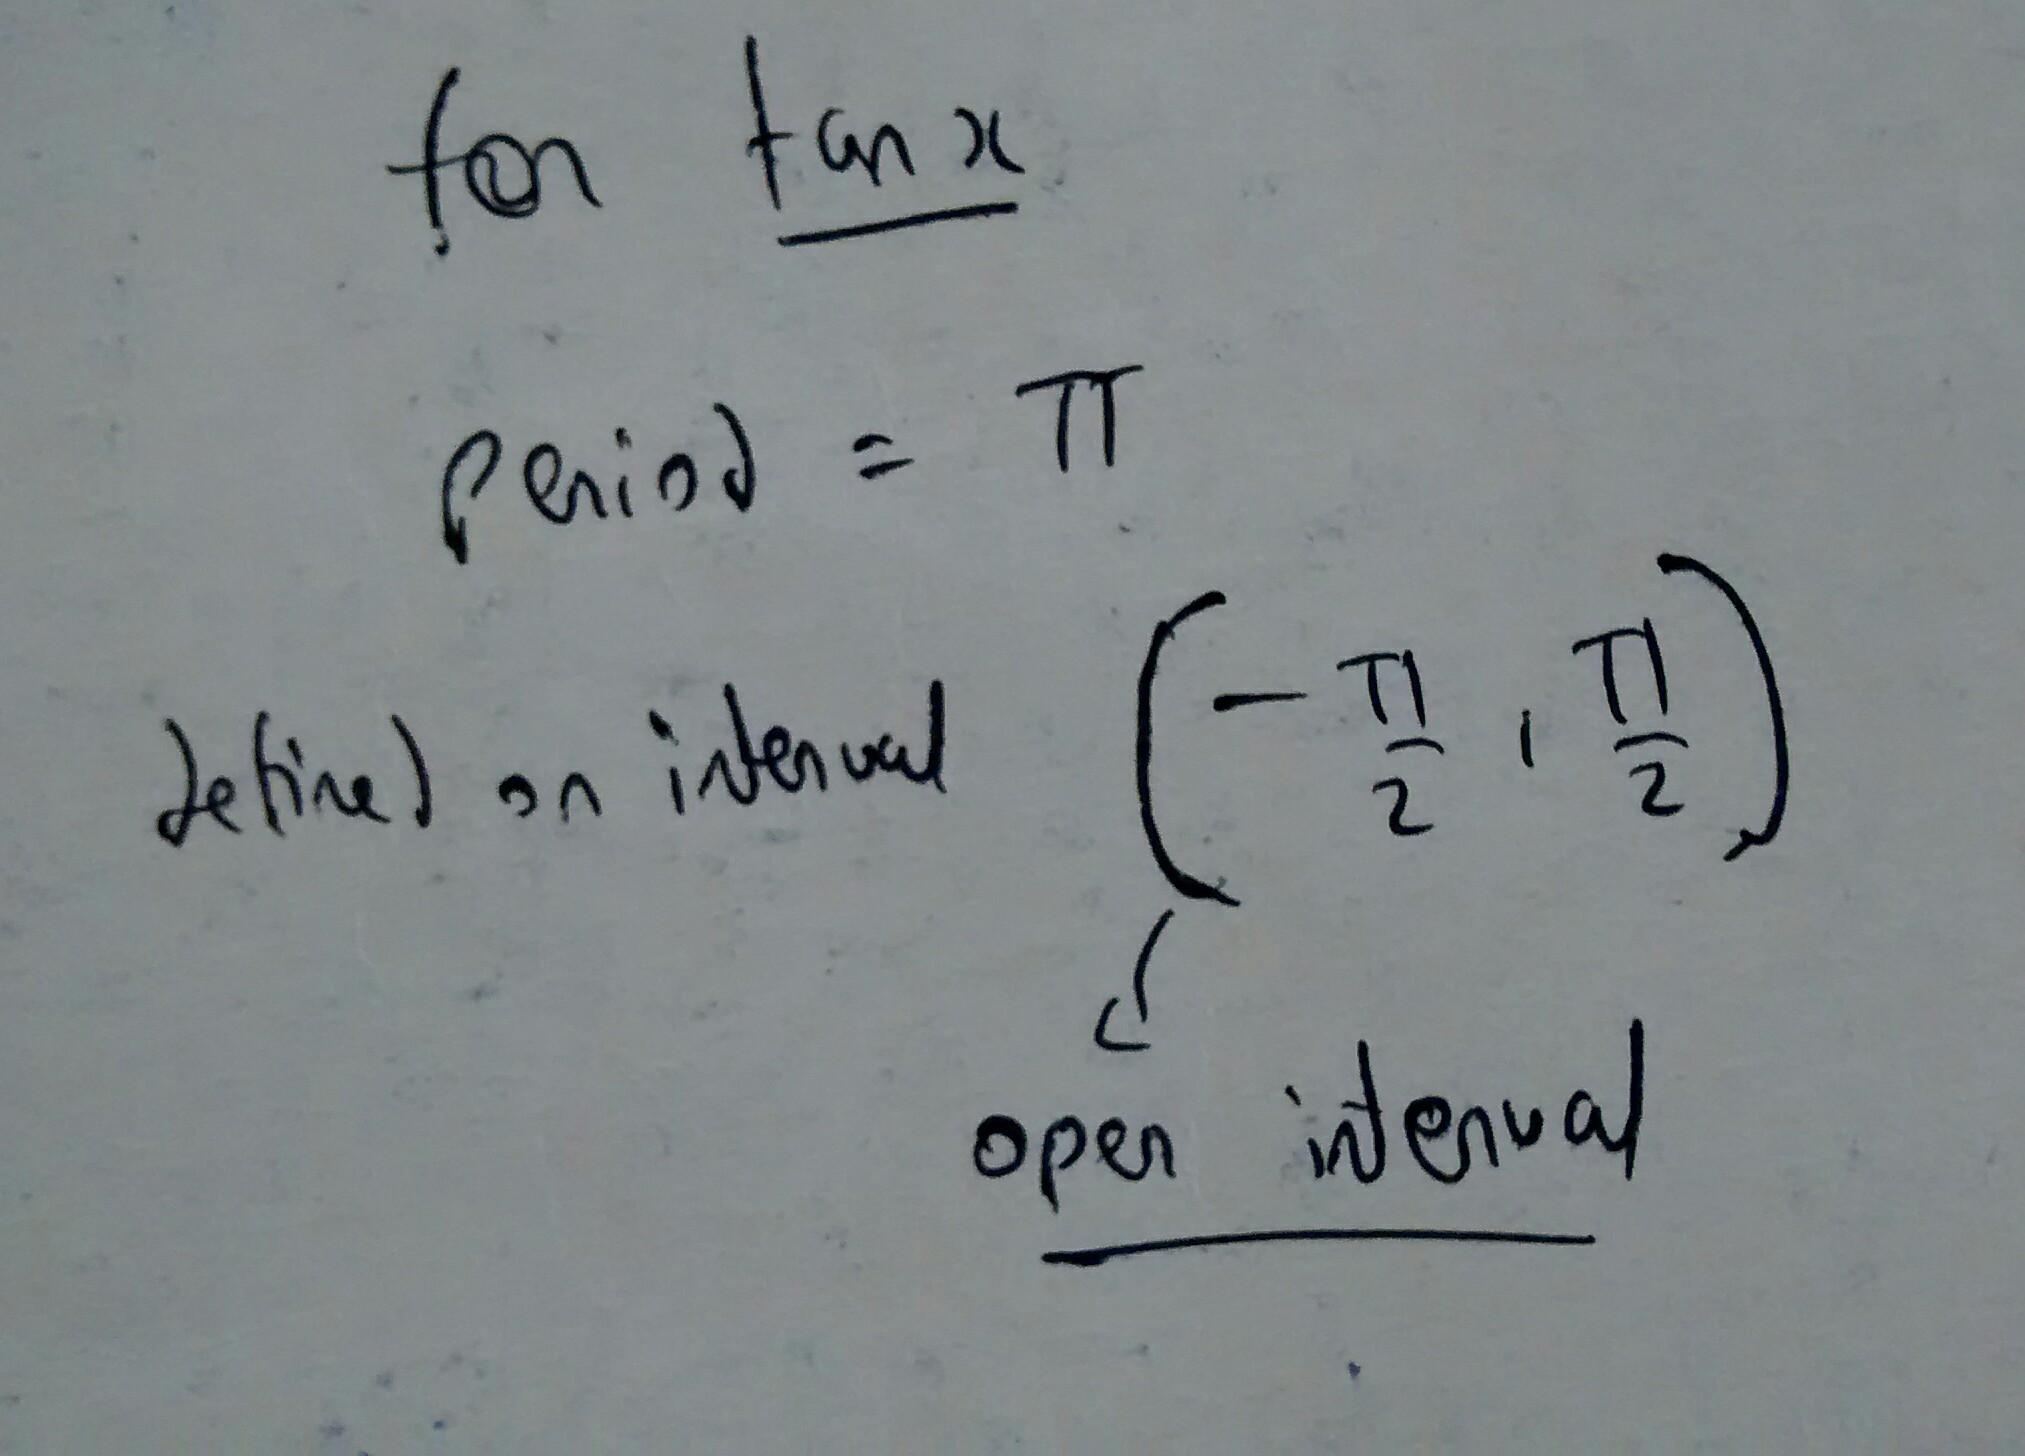 for tan x
period = π
defined on interval (-π/2, π/2)
open interval